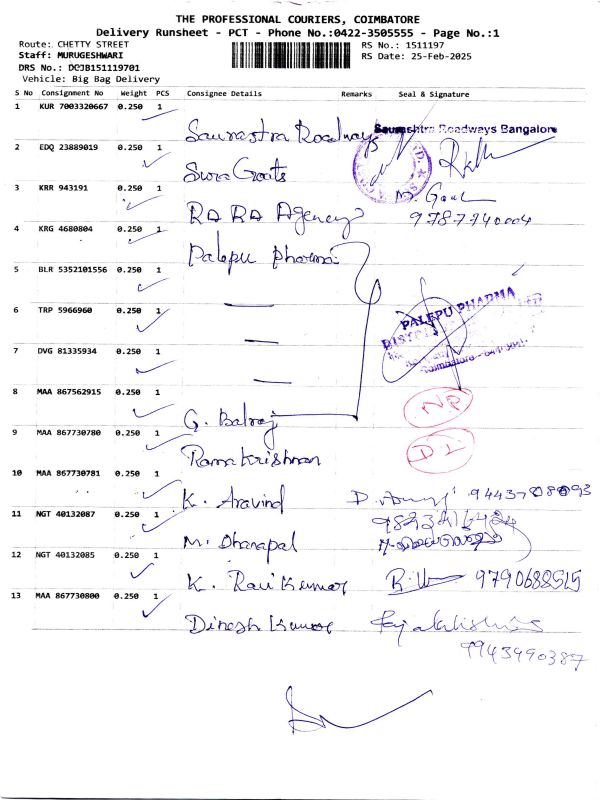 THE PROFESSIONAL COURIERS, COIMBATORE
Delivery Runsheet - PCT - Phone No.:0422-3505555 - Page No.:1
Route: CHETTY STREET
RS No.: 1511197
Staff: MURUGESHWARI
RS Date: 25-Feb-2025
DRS No.: DCJB151119701
Vehicle: Big Bag Delivery
S No Consignment No Weight PCS Consignee Details Remarks Seal & Signature
1 KUR 7003320667 0.250 1
Saurastra Roadways Saurashtra Roadways Bangalore
2 EDQ 23889019 0.250 1
Siva Goats
3 KRR 943191 0.250 1
RARA Agency 9787740004
4 KRG 4680804 0.250 1
Palepu Pharma
5 BLR 5352101556 0.250 1
6 TRP 5966960 0.250 1
PALEPU PHARMA
7 DVG 81335934 0.250 1
8 MAA 867562915 0.250 1
NP
G. Balraj
9 MAA 867730780 0.250 1
DL
Ramakrishnan
10 MAA 867730781 0.250 1
K. Aravind
11 NGT 40132087 0.250 1
M. Dhanapal
12 NGT 40132085 0.250 1
K. Ravi Kumar 9790688515
13 MAA 867730800 0.250 1
Dinesh Kumar
9943990387